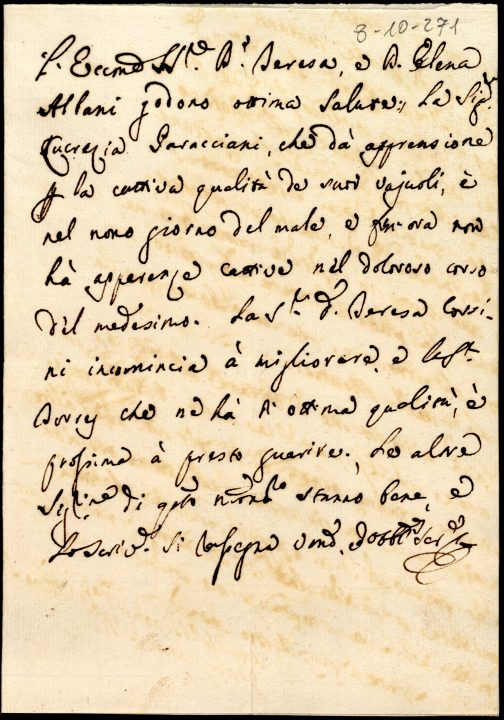 8-10-271
L'Eccme SS.re D.a Teresa, e D. Elena
Albani godono ottima salute; La Sig.ra
Lucrezia Paracciani, che dà apprensione
p la cattiva qualità de suoi vajuoli, è
nel nono giorno del male, e fin'ora non
hà apparenze cattive nel doloroso corso
del medesimo. La S.ra D. Teresa Corsi-
ni incomincia à migliorare, e la S.ra
che ne hà d'ottima qualità, è
prossima à presto guarire. Le altre
Sig.ine di qsto stanno bene, e
lo scriv.e si rassegna